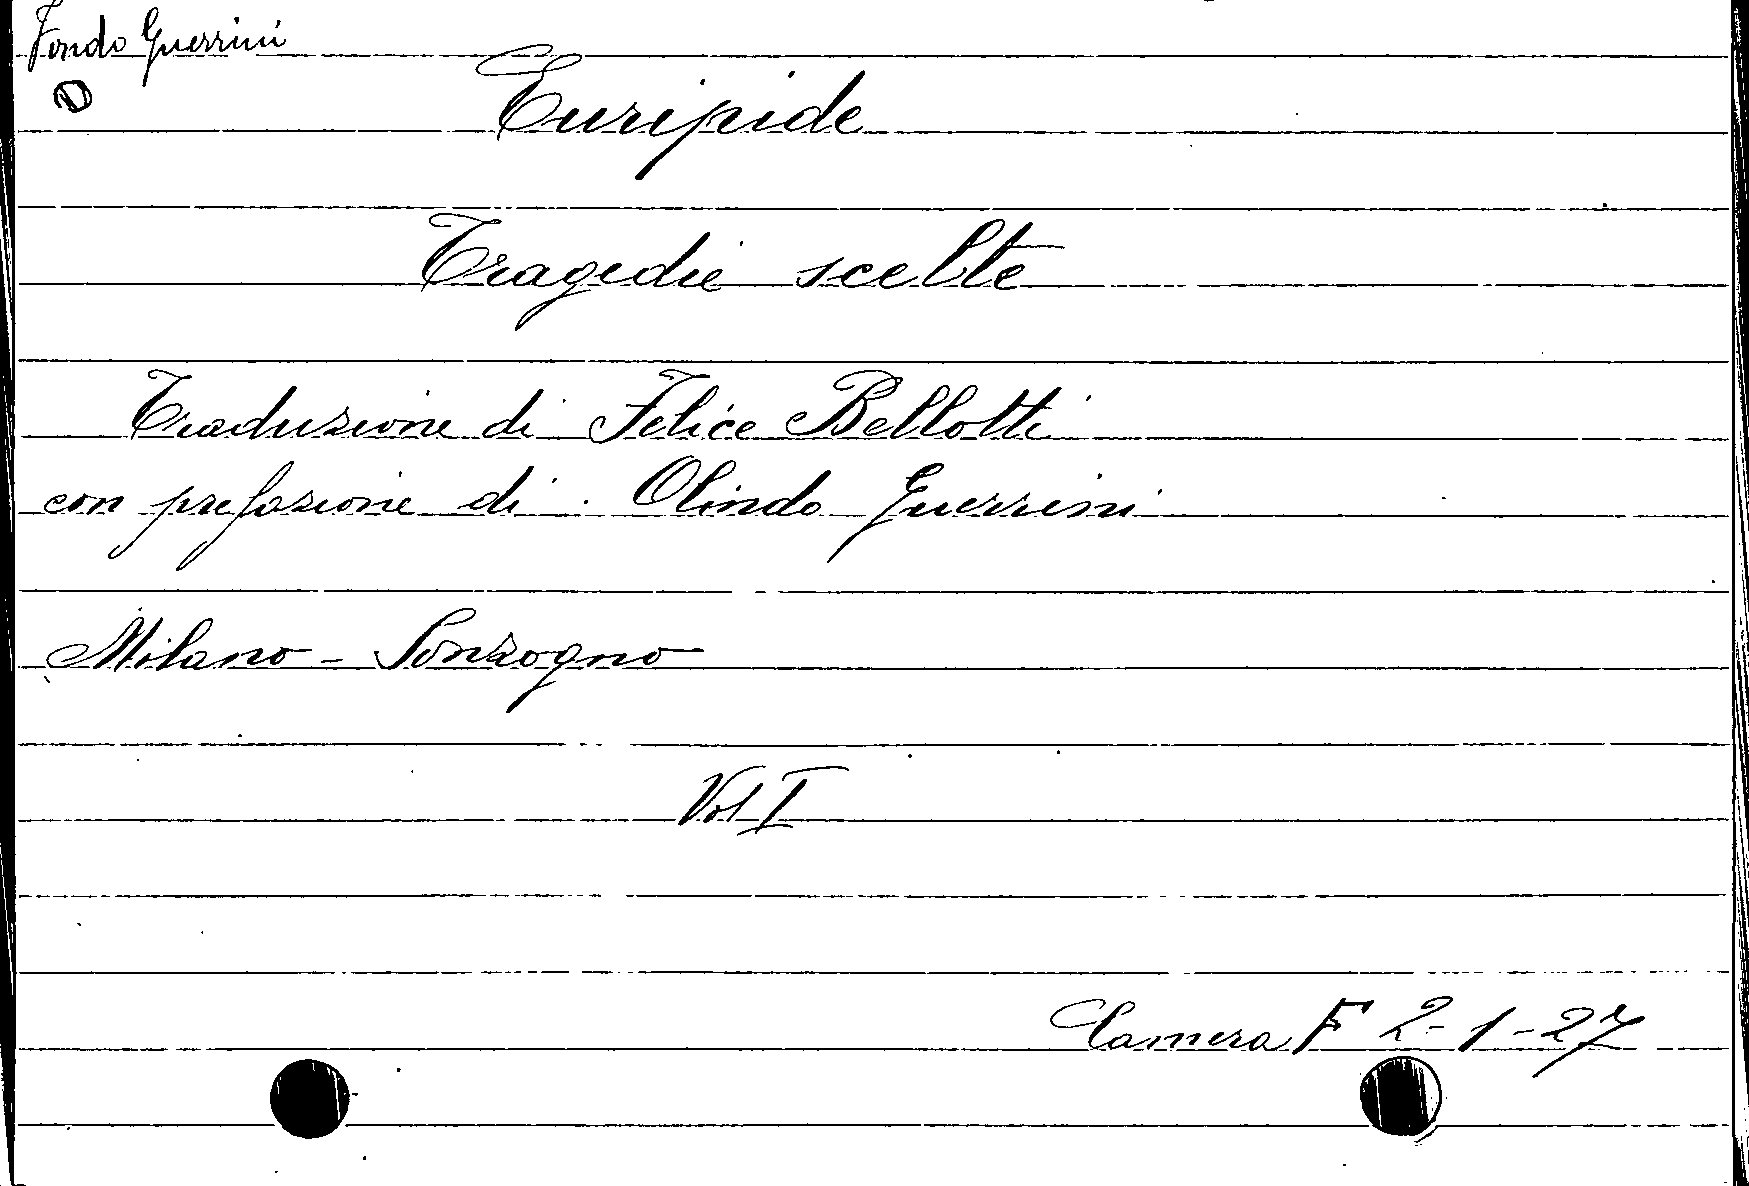 Fondo Guerrini
Euripide
Tragedie scelte
Traduzione di Felice Bellotti
con prefazione di Olindo Guerrini
Milano - Sonzogno
Vol I
Camera F 2-1-27